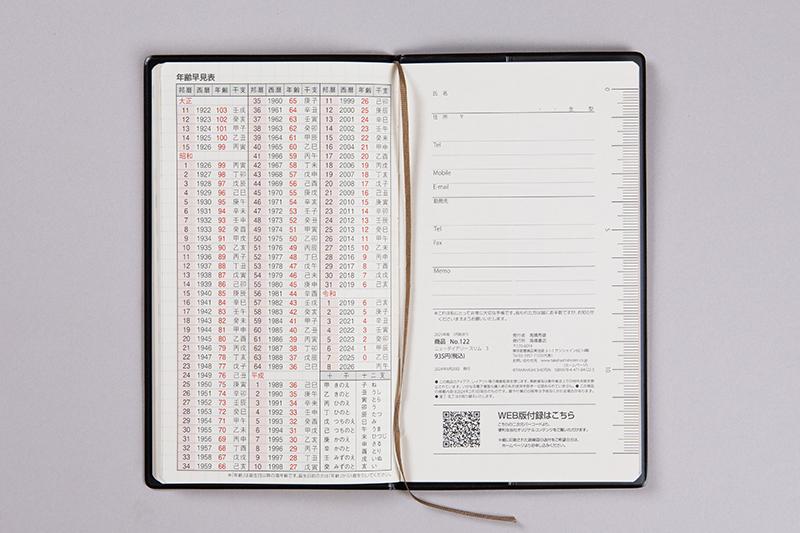 年齢早見表
邦暦 西暦 年齢 干支 邦暦 西暦 年齢 干支 邦暦 西暦 年齢 干支
大正 35 1960 65 庚子 11 1999 26 己卯
11 1922 103 壬戌 36 1961 64 辛丑 12 2000 25 庚辰
12 1923 102 癸亥 37 1962 63 壬寅 13 2001 24 辛巳
13 1924 101 甲子 38 1963 62 癸卯 14 2002 23 壬午
14 1925 100 乙丑 39 1964 61 甲辰 15 2003 22 癸未
15 1926 99 丙寅 40 1965 60 乙巳 16 2004 21 甲申
昭和 41 1966 59 丙午 17 2005 20 乙酉
1 1926 99 丙寅 42 1967 58 丁未 18 2006 19 丙戌
2 1927 98 丁卯 43 1968 57 戊申 19 2007 18 丁亥
3 1928 97 戊辰 44 1969 56 己酉 20 2008 17 戊子
4 1929 96 己巳 45 1970 55 庚戌 21 2009 16 己丑
5 1930 95 庚午 46 1971 54 辛亥 22 2010 15 庚寅
6 1931 94 辛未 47 1972 53 壬子 23 2011 14 辛卯
7 1932 93 壬申 48 1973 52 癸丑 24 2012 13 壬辰
8 1933 92 癸酉 49 1974 51 甲寅 25 2013 12 癸巳
9 1934 91 甲戌 50 1975 50 乙卯 26 2014 11 甲午
10 1935 90 乙亥 51 1976 49 丙辰 27 2015 10 乙未
11 1936 89 丙子 52 1977 48 丁巳 28 2016 9 丙申
12 1937 88 丁丑 53 1978 47 戊午 29 2017 8 丁酉
13 1938 87 戊寅 54 1979 46 己未 30 2018 7 戊戌
14 1939 86 己卯 55 1980 45 庚申 31 2019 6 己亥
15 1940 85 庚辰 56 1981 44 辛酉 令和
16 1941 84 辛巳 57 1982 43 壬戌 1 2019 6 己亥
17 1942 83 壬午 58 1983 42 癸亥 2 2020 5 庚子
18 1943 82 癸未 59 1984 41 甲子 3 2021 4 辛丑
19 1944 81 甲申 60 1985 40 乙丑 4 2022 3 壬寅
20 1945 80 乙酉 61 1986 39 丙寅 5 2023 2 癸卯
21 1946 79 丙戌 62 1987 38 丁卯 6 2024 1 甲辰
22 1947 78 丁亥 63 1988 37 戊辰 7 2025 0 乙巳
23 1948 77 戊子 64 1989 36 己巳 8 2026 丙午
24 1949 76 己丑 平成 十干 十二支
25 1950 75 庚寅 1 1989 36 己巳 甲 きのえ 子 ね
26 1951 74 辛卯 2 1990 35 庚午 乙 きのと 丑 うし
27 1952 73 壬辰 3 1991 34 辛未 丙 ひのえ 寅 とら
28 1953 72 癸巳 4 1992 33 壬申 丁 ひのと 卯 う
29 1954 71 甲午 5 1993 32 癸酉 戊 つちのえ 辰 たつ
30 1955 70 乙未 6 1994 31 甲戌 己 つちのと 巳 み
31 1956 69 丙申 7 1995 30 乙亥 庚 かのえ 午 うま
32 1957 68 丁酉 8 1996 29 丙子 辛 かのと 未 ひつじ
33 1958 67 戊戌 9 1997 28 丁丑 壬 みずのえ 申 さる
34 1959 66 己亥 10 1998 27 戊寅 癸 みずのと 酉 とり
戌 いぬ
亥 い
氏名
・ ・ 生 型
住所 〒
Tel
Mobile
E-mail
勤務先
Tel
Fax
Memo
0
5
10
商品 No.122
ニューダイアリー スリム 3
935円(税込)
発行所 高橋書店
WEB版付録はこちら